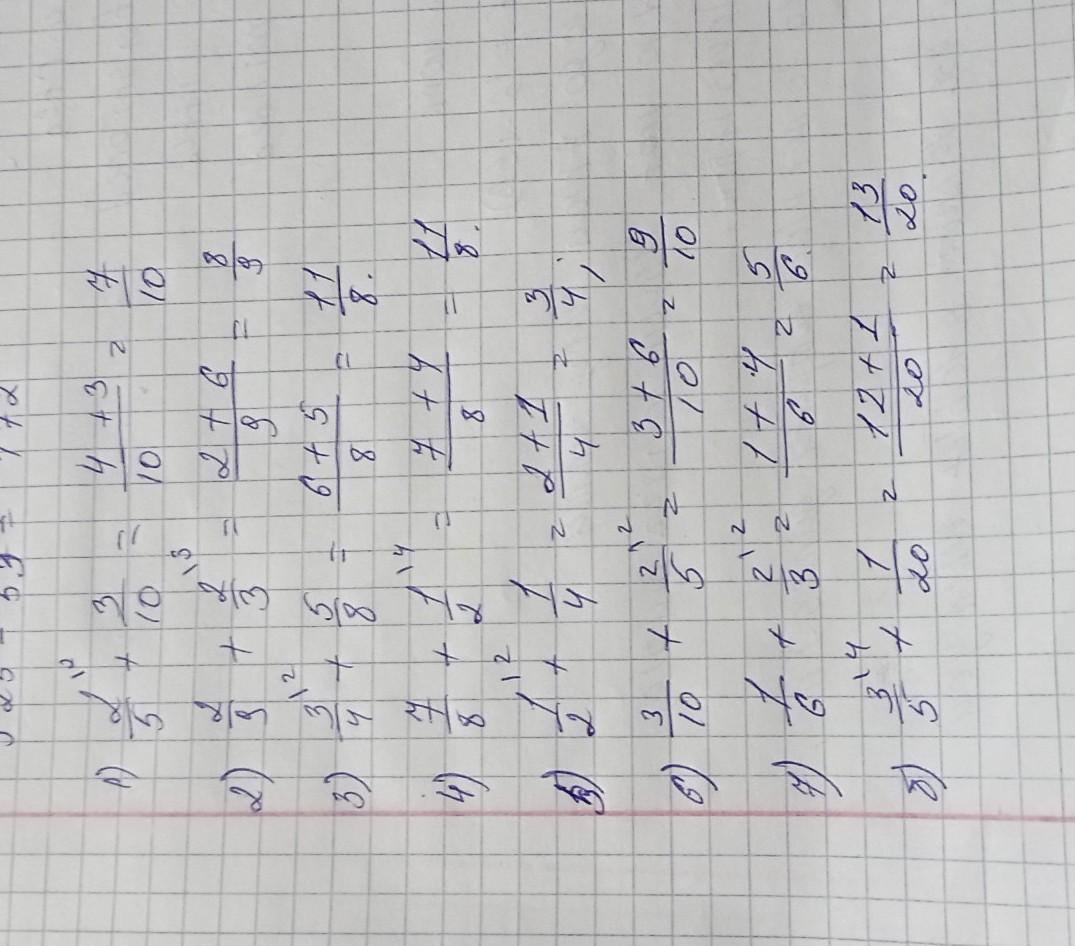 1) 2/5 \2 + 3/10 = 4+3/10 = 7/10
2) 2/9 + 2/3 \3 = 2+6/9 = 8/9
3) 3/4 \2 + 5/8 = 6+5/8 = 11/8.
4) 7/8 + 1/2 \4 = 7+4/8 = 11/8.
5) 1/2 \2 + 1/4 = 2+1/4 = 3/4;
6) 3/10 + 2/5 \2 = 3+6/10 = 9/10
7) 1/6 + 2/3 \2 = 1+4/6 = 5/6.
8) 3/5 \4 + 1/20 = 12+1/20 = 13/20.